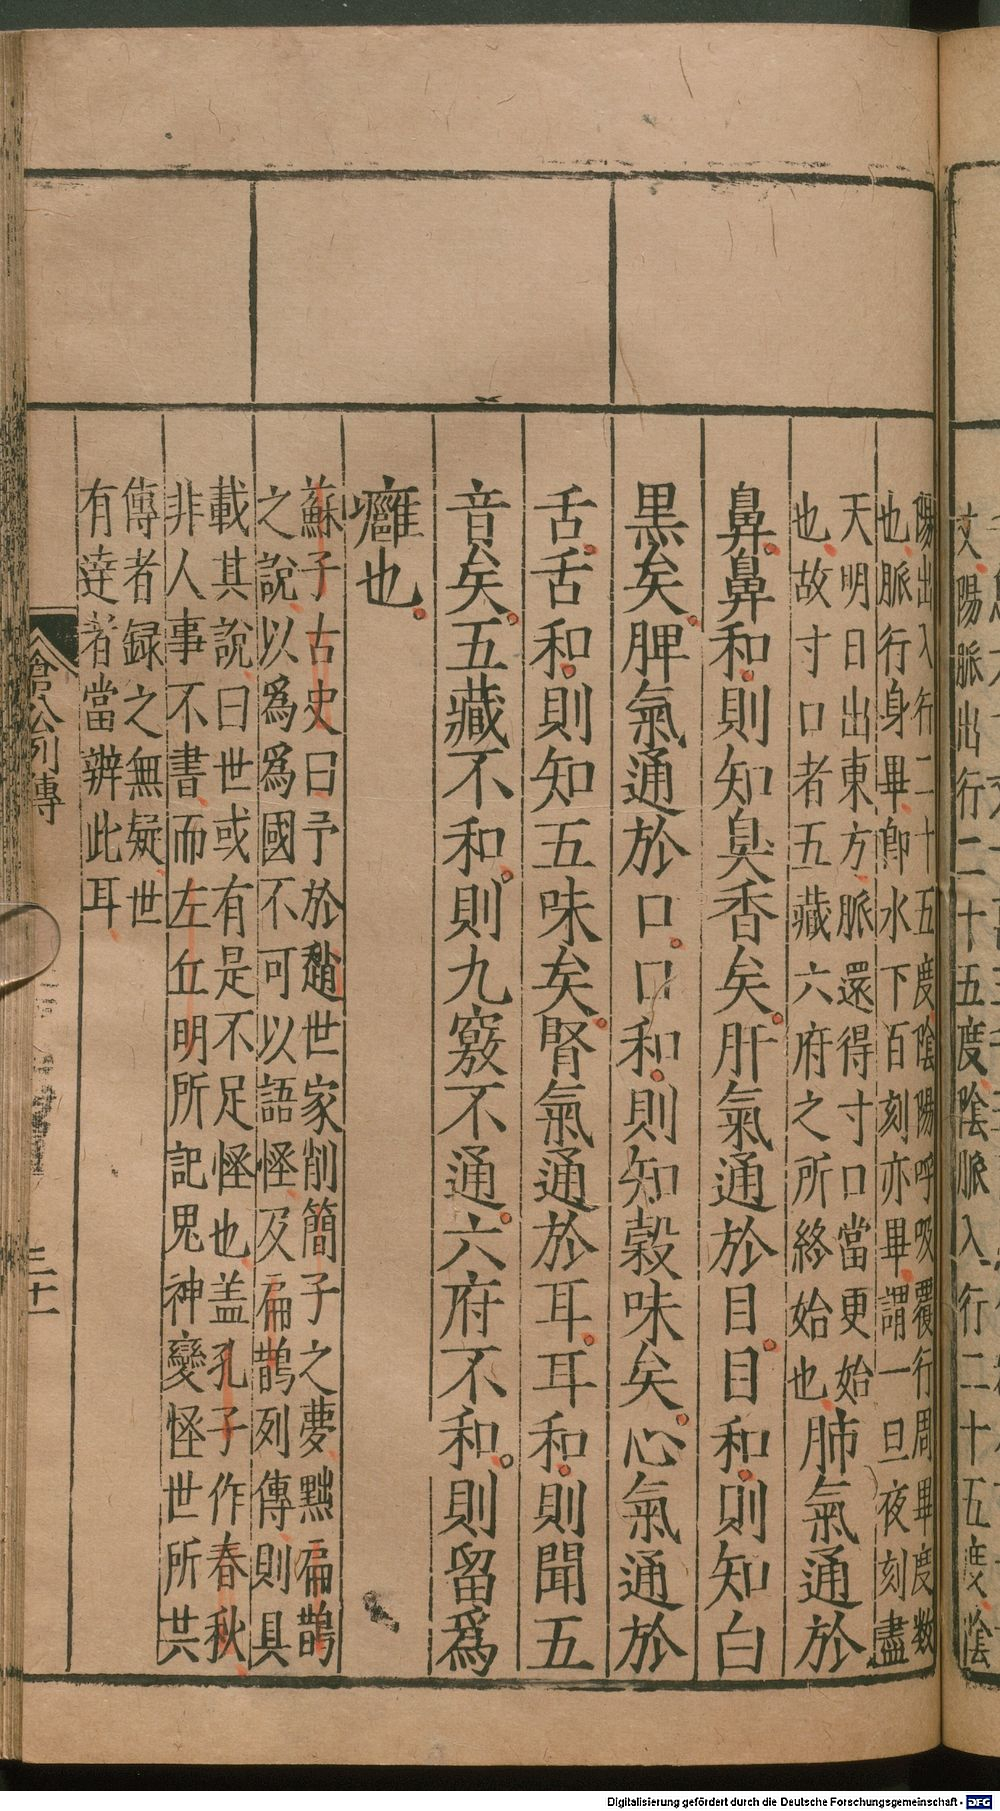 文陽脈出行二十五度陰脈入行二十五度陰
陽出入行二十五度陰陽呼吸覆行周畢度数
也脈行身畢即水下百刻亦畢謂一旦夜刻盡
天明日出東方脈還得寸口當更始
也故寸口者五藏六府之所終始也
肺氣通於
鼻鼻和則知臭香矣肝氣通於目目和則知白
黒矣脾氣通於口口和則知穀味矣心氣通於
舌舌和則知五味矣腎氣通於耳耳和則聞五
音矣五藏不和則九竅不通六府不和則留爲
癰也
蘇子古史曰予於趙世家削簡子之夢黜扁鵲
之說以爲爲國不可以語怪及扁鵲列傳則具
載其說曰世或有是不足怪也盖孔子作春秋
非人事不書而左丘明所記鬼神變怪世所共
傳者録之無疑世
有達者當辨此耳
倉公列傳
三十一
Digitalisierung gefördert durch die Deutsche Forschungsgemeinschaft - DFG